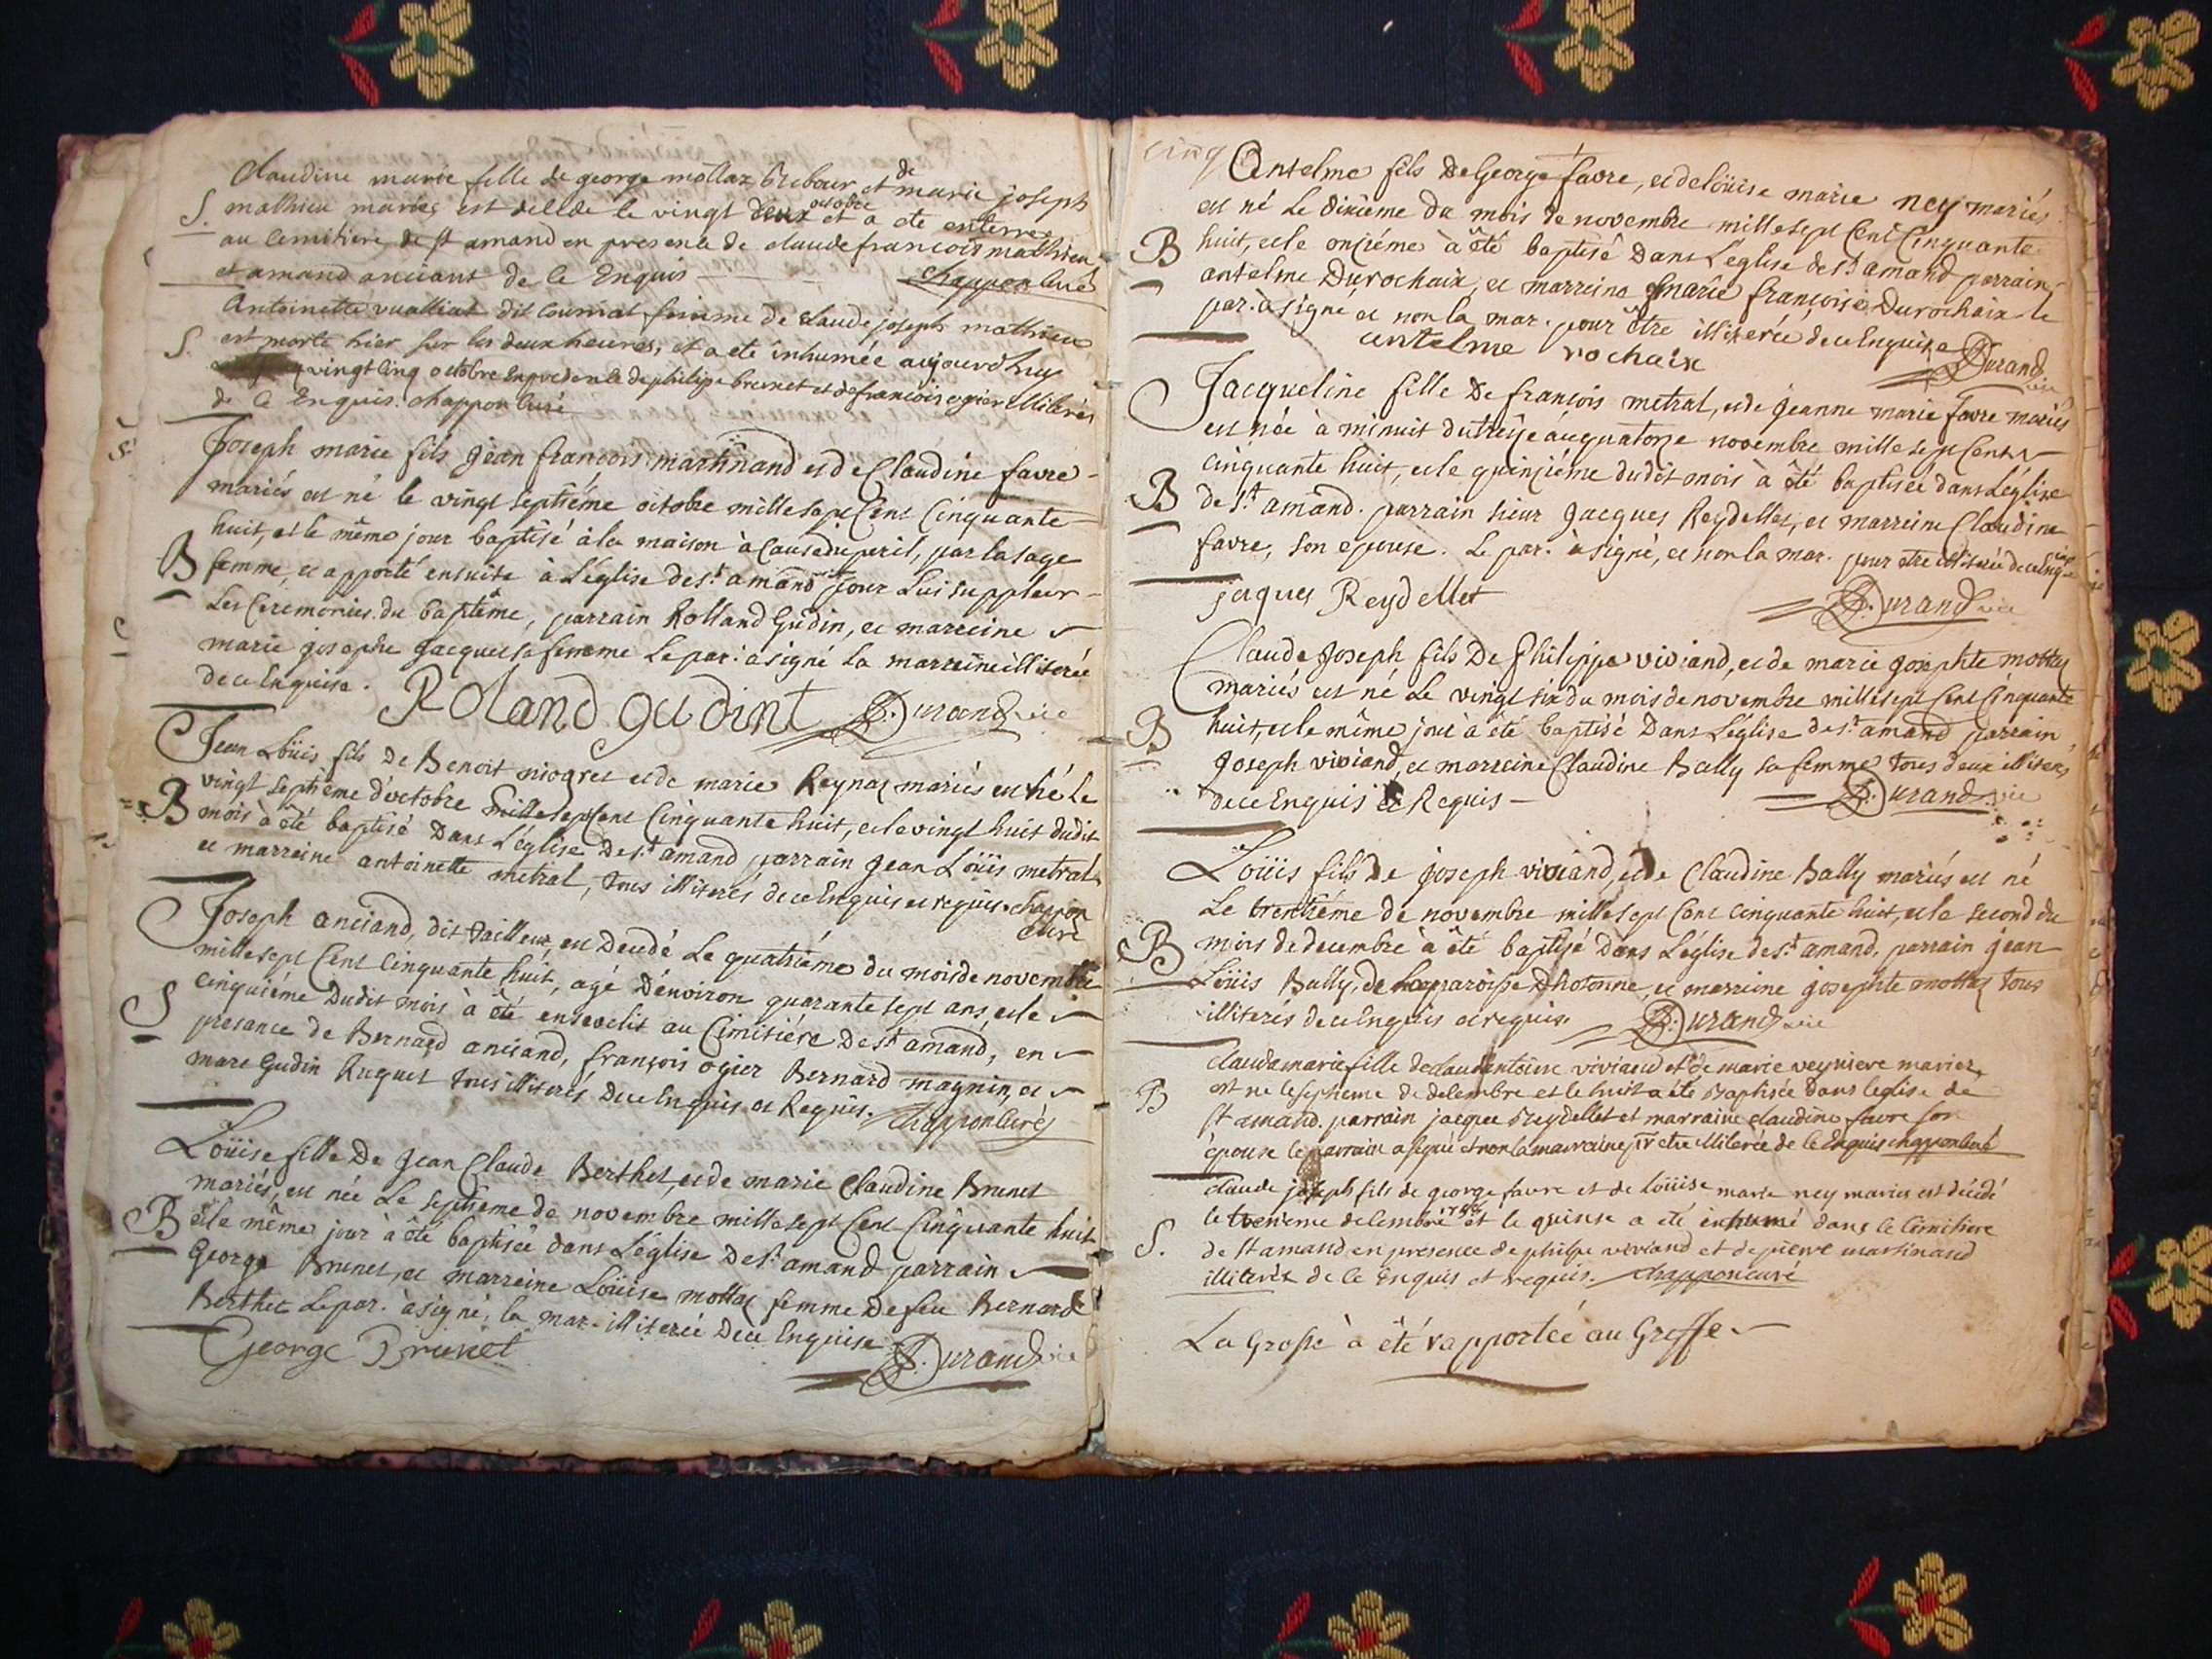 Claudine marie fille de george mollaz Rebour et de marie joseph
S. mathieu mariés est decede le vingt deux octobre et a ete enterree
au cemitiere de st amand en presence de claude francois mathieu
et amand anciant de ce Enquis chappon curé
Antoinette vualliat dit cournat femme de claude joseph mathieu
S. est morte hier sur les deux heures, et a ete inhumée aujourdhuy
vingt cinq octobre en presence de philipe brunet et de francois ogier illiteres
de ce Enquis. chappon curé
Joseph marie fils jean francois martinand et de Claudine favre
mariés est né le vingt septiéme octobre mille sept Cent Cinquante
huit, et le même jour baptisé à la maison à Cause du peril, par la sage
B femme, et apporté ensuite à L'église de st amand pour Lui suppleer
Les Ceremonies du baptême, parrain Rolland Gudin, et marreine
marie josephe jacquet sa femme le par: a signé la marreine illiterée
de ce Enquise.
Roland gudint Durand vic
Jean Loüis fils de Benoit niogret et de marie Reynaz mariés est né le
vingt septiéme d'octobre mille sept Cent Cinquante huit, et le vingt huit dudit
B mois à été baptisé Dans L'église de st amand parrain jean Loüis metral
et marreine antoinette metral, tous illiterés de ce Enquis et requis. chappon
curé
Joseph anciand, dit tailleur, est Decedé Le quatriéme du mois de novembre
mille sept Cent Cinquante huit, agé D'environ quarante sept ans, et le
S cinquiéme Dudit mois à été enseveli au Cimitiére De st amand, en
presance de Bernard anciand, françois ogier Bernard magnin, et
marc Gudin Ruquet tous illiterés De ce Enquis et Requis. chappon curé
Loüise fille De jean Claude Berthet, et de marie Claudine Brunet
mariés, est née Le septiéme de novembre mille sept Cent Cinquante huit
B et le même jour à été baptisée dans L'église De st amand parrain
George Brunet, et marreine Loüise mottaz femme De feu Bernard
Berthet le par. à signé, la mar. illiterée De ce Enquise
George Brunet Durand vic
cinq Antelme fils De George favre, et de loüise marie ney mariés
est né Le dixiéme du mois de novembre mille sept Cent Cinquante
B huit, et le onziéme à été baptisé Dans L'église de st amand parrain
antelme Durochaix, et marreine marie françoise Durochaix le
par. à signé et non la mar. pour être illiterée de ce Enquise
antelme rochaix Durand vic
Jacqueline fille De françois metral, et de jeanne marie favre mariés
est née à minuit du treize au quatorze novembre mille sept Cent
cinquante huit, et le quinziéme dudit mois à été baptisée dans L'église
B de st amand. parrain sieur jacques Reydellet, et marreine Claudine
favre, son epouse. Le par. à signé, et non la mar. pour etre illiterée de ce Enq.
jaques Reydellet Durand vic
Claude Joseph fils De Philippe viviand, et de marie josephte mottaz
mariés est né Le vingt six du mois de novembre mille sept Cent Cinquante
B huit, et le même jour à été baptisé Dans L'église de st amand parrain
Joseph viviand, et marreine Claudine Bally sa femme tous deux illiterés
de ce Enquis et Requis Durand vic
Loüis fils de joseph viviand, et de Claudine Bally mariés est né
Le trentiéme de novembre mille sept Cent cinquante huit, et le second du
B mois de decembre à été baptisé Dans L'église de st amand. parrain jean
Loüis Bally, de la paroisse D'hotonne, et marreine josephte mottaz tous
illiterés de ce Enquis et requis. Durand vic
Claudamarie fille de claudantoine viviand et de marie veyriere mariez
B est ne le septieme de decembre et le huit a été Baptisée dans leglise de
st amand. parrain jacque Reydellet et marraine claudine favre son
épouse le parrain a signé et non la marraine pr etre illiterée de ce Enquis chappon curé
Claude joseph fils de george favre et de loüise marie ney mariés est décédé
le treisieme decembre 1758 et le quinse a été inhumé dans le Cimitiere
S. de st amand en presence de philipe viviand et de pierre martinand
illiterés de ce Enquis et requis. chappon curé
La Grosse à été rapportée au Greffe